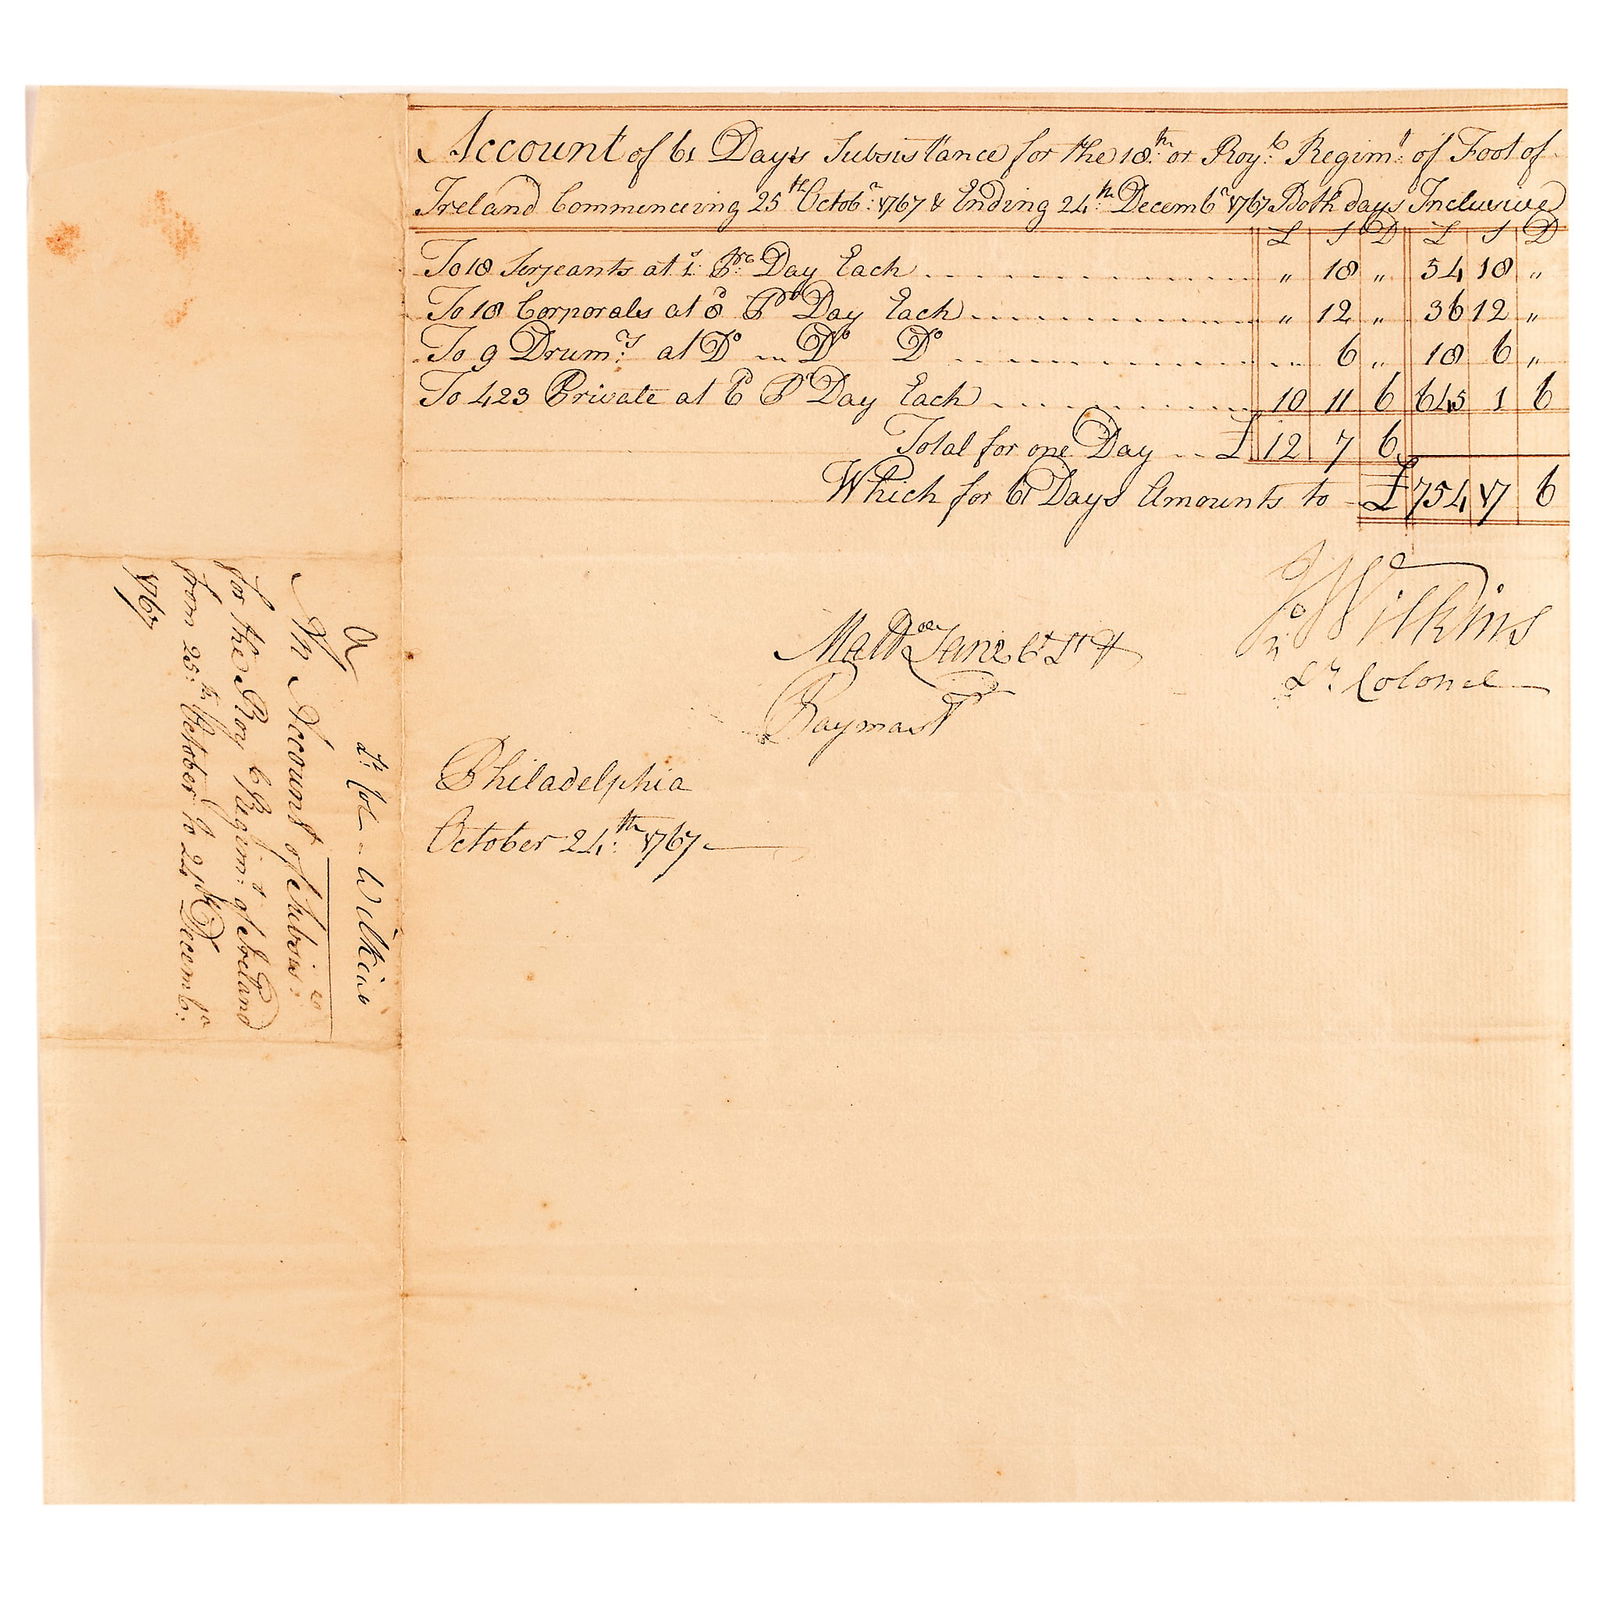 Account of 61 Days Subsistance for the 18.th or Roy.l Regim.t of Foot of
Ireland Commenceing 25th Octob.r 1767 & Ending 24.th Decemb.r 1767 Both days Inclusive
L S D L S D
To 18 Serjeants at 1s P.r Day Each ... " 18 " 54 18 "
To 18 Corporals at 8d P.r Day Each ... " 12 " 36 12 "
To 9 Drum.rs at Do ... Do Do ... 6 " 18 6 "
To 423 Private at 6d P.r Day Each ... 10 11 6 645 1 6
Total for one Day .. £ 12 7 6
Which for 61 Days Amounts to - £ 754 17 6
Jno Wilkins
Lt Colonel
Matt Lane Ct Lt &
Paymast.r
Philadelphia
October 24.th 1767
Lt Col Wilkins
An Account of Subsis.ce
for the Roy.l Regim.t of Ireland
from 25.th October to 24.th Decemb.r
1767